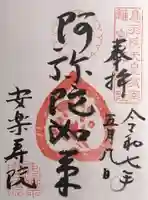 奉拝
令和七年
五月九日
阿弥陀如来
安楽寿院